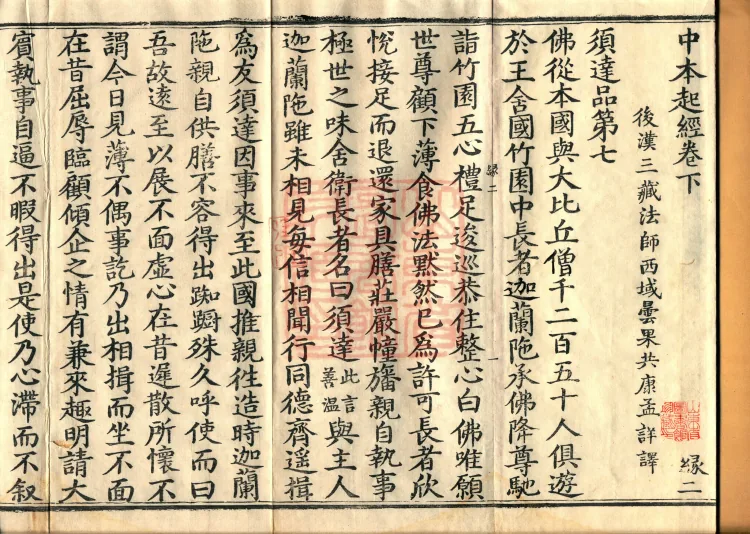 中本起經卷下
緣二
後漢三藏法師西域曇果共康孟詳譯
須達品第七
佛從本國與大比丘僧千二百五十人俱遊
於王舍國竹園中長者迦蘭陁承佛降尊馳
詣竹園五心禮足逡巡恭住整心白佛唯願
緣二
一
世尊顧下薄食佛法黙然已為許可長者欣
恱接足而退還家具膳莊嚴幢旛親自執事
極世之味舍衛長者名曰須達此言善温與主人
迦蘭陁雖未相見每信相聞行同德齊遥揖
為友須達因事來至此國推親徃造時迦蘭
陁親自供膳不容得出踟蹰殊久呼使而曰
吾故遠至以展不面虛心在昔遲散所懷不
謂今日見薄不偶事訖乃出相揖而坐不面
在昔屈辱臨顧傾企之情有兼來趣明請大
賔執事自逼不暇得出是使乃心滯而不叙